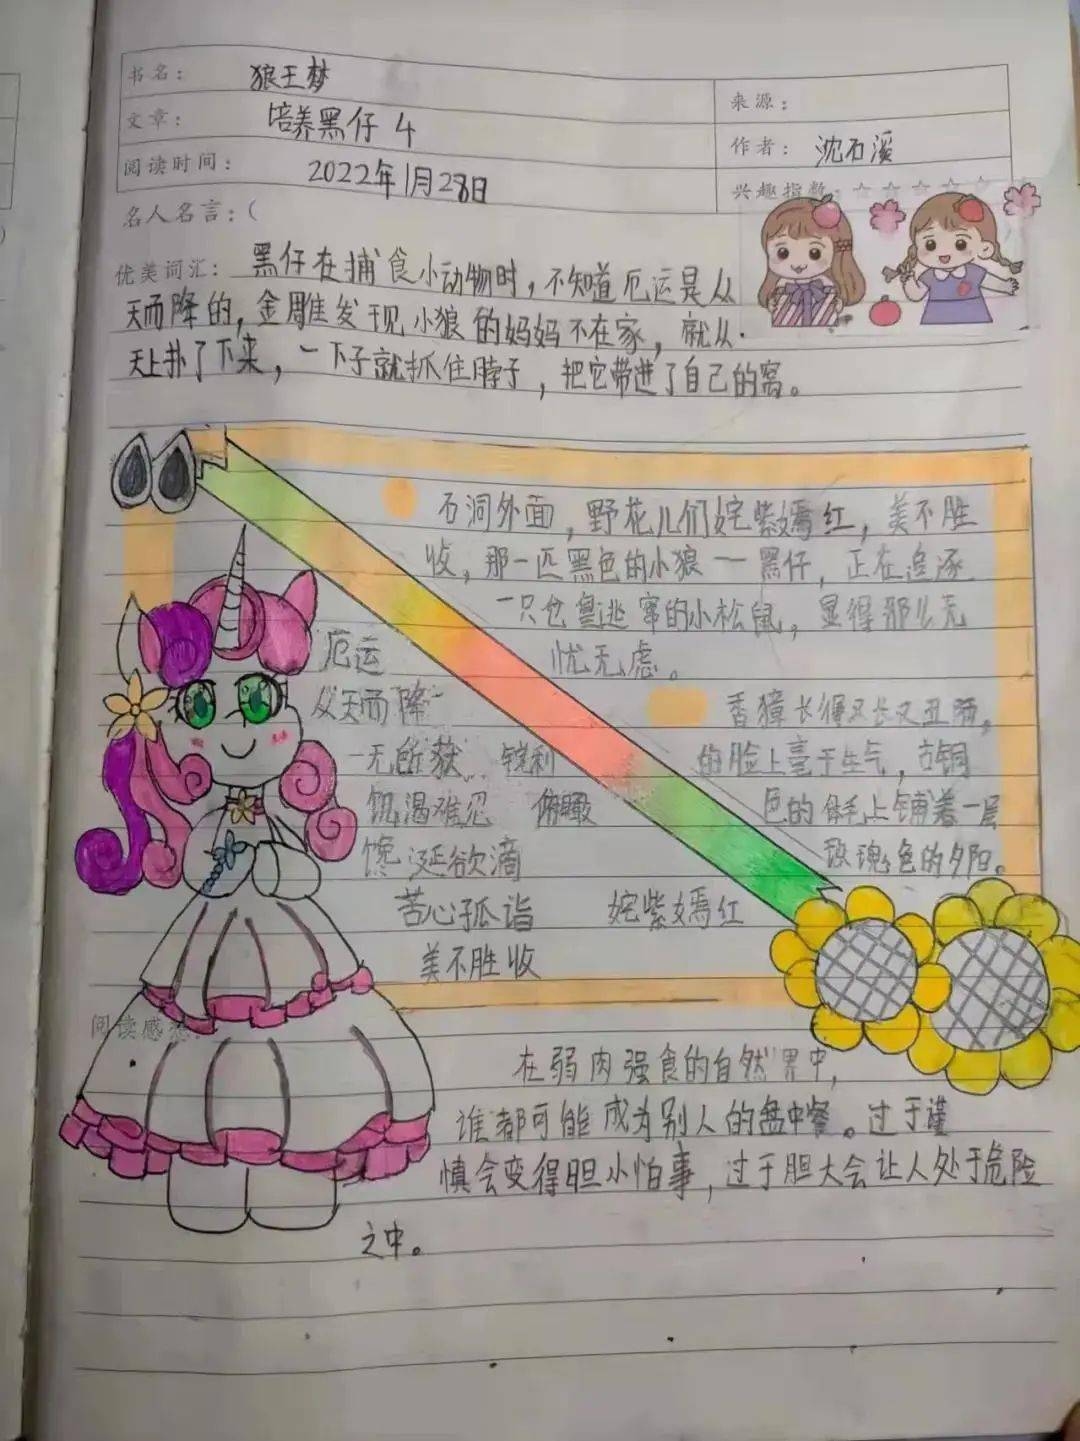 书名： 狼王梦
来源：
文章： 培养黑仔 4
作者： 沈石溪
阅读时间： 2022年1月28日
兴趣指数：☆☆☆☆
名人名言：(
优美词汇： 黑仔在捕食小动物时，不知道厄运是从
天而降的，金雕发现小狼的妈妈不在家，就从
天上扑了下来，一下子就抓住脖子，把它带进了自己的窝。
石洞外面，野花儿们姹紫嫣红，美不胜
收，那一匹黑色的小狼一黑仔，正在追逐
一只仓皇逃窜的小松鼠，显得那么无
忧无虑。
厄运
从天而降
一无所获 锐利
饥渴难忍 俯瞰
馋涎欲滴
苦心孤诣 姹紫嫣红
美不胜收
香獐长得又长又丑陋，
的脸上毫于生气，古铜
色的 上铺着一层
玫瑰色的夕阳。
阅读感想：
在弱肉强食的自然界中，
谁都可能成为别人的盘中餐。过于谨
慎会变得胆小怕事，过于胆大会让人处于危险
之中。